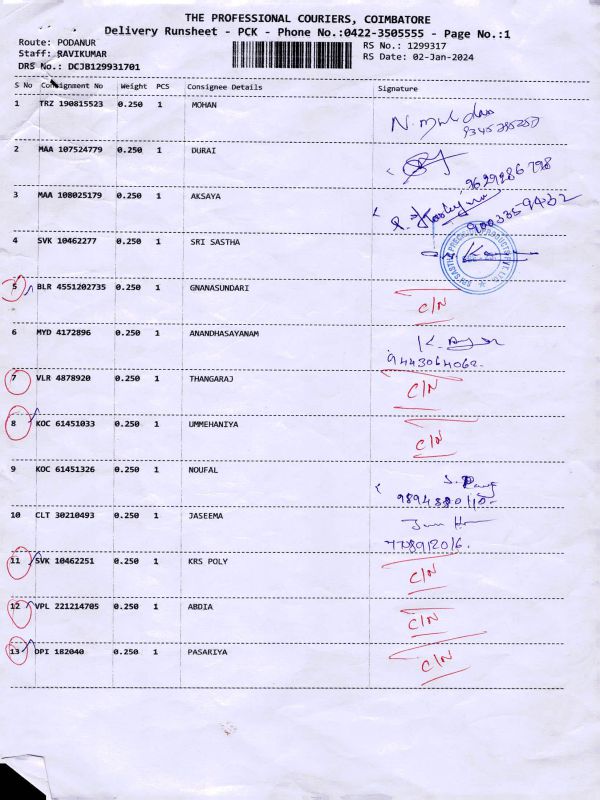 THE PROFESSIONAL COURIERS, COIMBATORE
Delivery Runsheet - PCK - Phone No.:0422-3505555 - Page No.:1
Route: PODANUR
RS No.: 1299317
Staff: RAVIKUMAR
RS Date: 02-Jan-2024
DRS No.: DCJB129931701
S No Consignment No Weight PCS Consignee Details Signature
1 TRZ 190815523 0.250 1 MOHAN
2 MAA 107524779 0.250 1 DURAI
9629286798
3 MAA 108025179 0.250 1 AKSAYA
4 SVK 10462277 0.250 1 SRI SASTHA
5 BLR 4551202735 0.250 1 GNANASUNDARI
C/N
6 MYD 4172896 0.250 1 ANANDHASAYANAM
9443064062.
7 VLR 4878920 0.250 1 THANGARAJ
C/N
8 KOC 61451033 0.250 1 UMMEHANIYA
C/N
9 KOC 61451326 0.250 1 NOUFAL
10 CLT 30210493 0.250 1 JASEEMA
11 SVK 10462251 0.250 1 KRS POLY
C/N
12 VPL 221214705 0.250 1 ABDIA
C/N
13 DPI 182040 0.250 1 PASARIYA
C/N